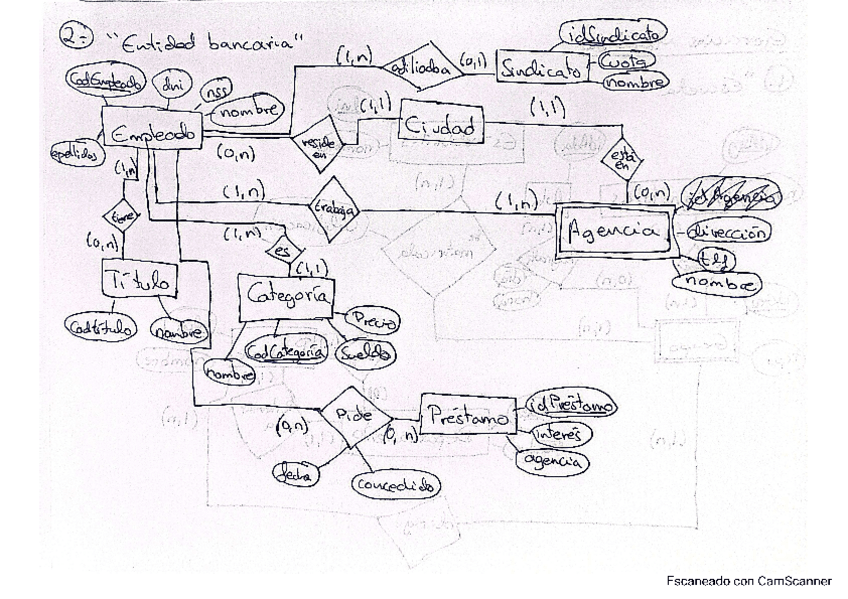 2:- "Entidad bancaria"
idSindicato
(1,n) afiliado a (0,1) Sindicato
cuota
nombre
CodEmpleado dni nss
nombre
Empleado
apellidos
(0,n) reside en (1,1) Ciudad (1,1)
está en
(0,n)
(1,n) tiene (0,n)
Título
Codtítulo nombre
(1,n) trabaja (1,n)
Agencia
idAgencia
dirección
tlf
nombre
(1,n) es (1,1)
Categoría
Precio
Sueldo
CodCategoría
nombre
(0,n) Pide (0,n) Préstamo
idPréstamo
interés
agencia
fecha
concedido
Escaneado con CamScanner